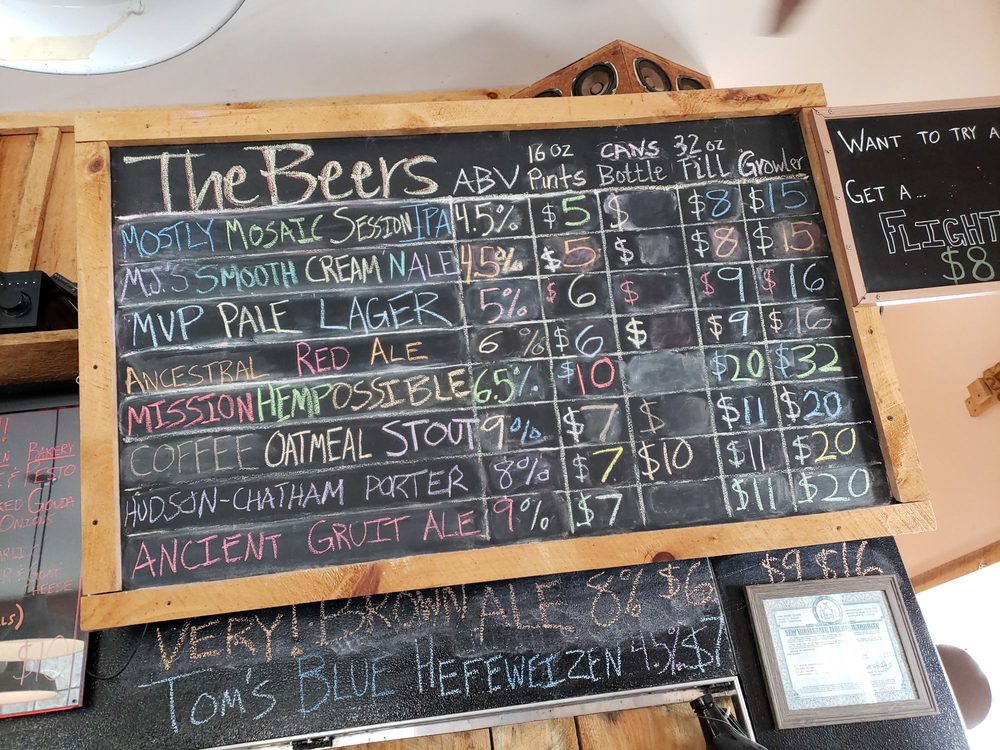 The Beers ABV 16 oz Pints CANS Bottle 32 oz Fill Growler
MOSTLY MOSAIC SESSION IPA 4.5% $5 $ $8 $15
MJ'S SMOOTH CREAM 'N ALE 4.5% $5 $ $8 $15
MVP PALE LAGER 5% $6 $ $9 $16
ANCESTRAL RED ALE 6% $6 $ $9 $16
MISSION HEMPOSSIBLE 6.5% $10 $20 $32
COFFEE OATMEAL STOUT 9% $7 $ $11 $20
HUDSON-CHATHAM PORTER 8% $7 $10 $11 $20
ANCIENT GRUIT ALE 9% $7 $11 $20
VERY! BROWN ALE 8% $6 $9 $16
TOM'S BLUE HEFEWEIZEN 4.5% $7
WANT TO TRY A
GET A...
FLIGHT
$8
BAKERY
& PESTO
GOUDA
ONIONS
CHEESE
$16